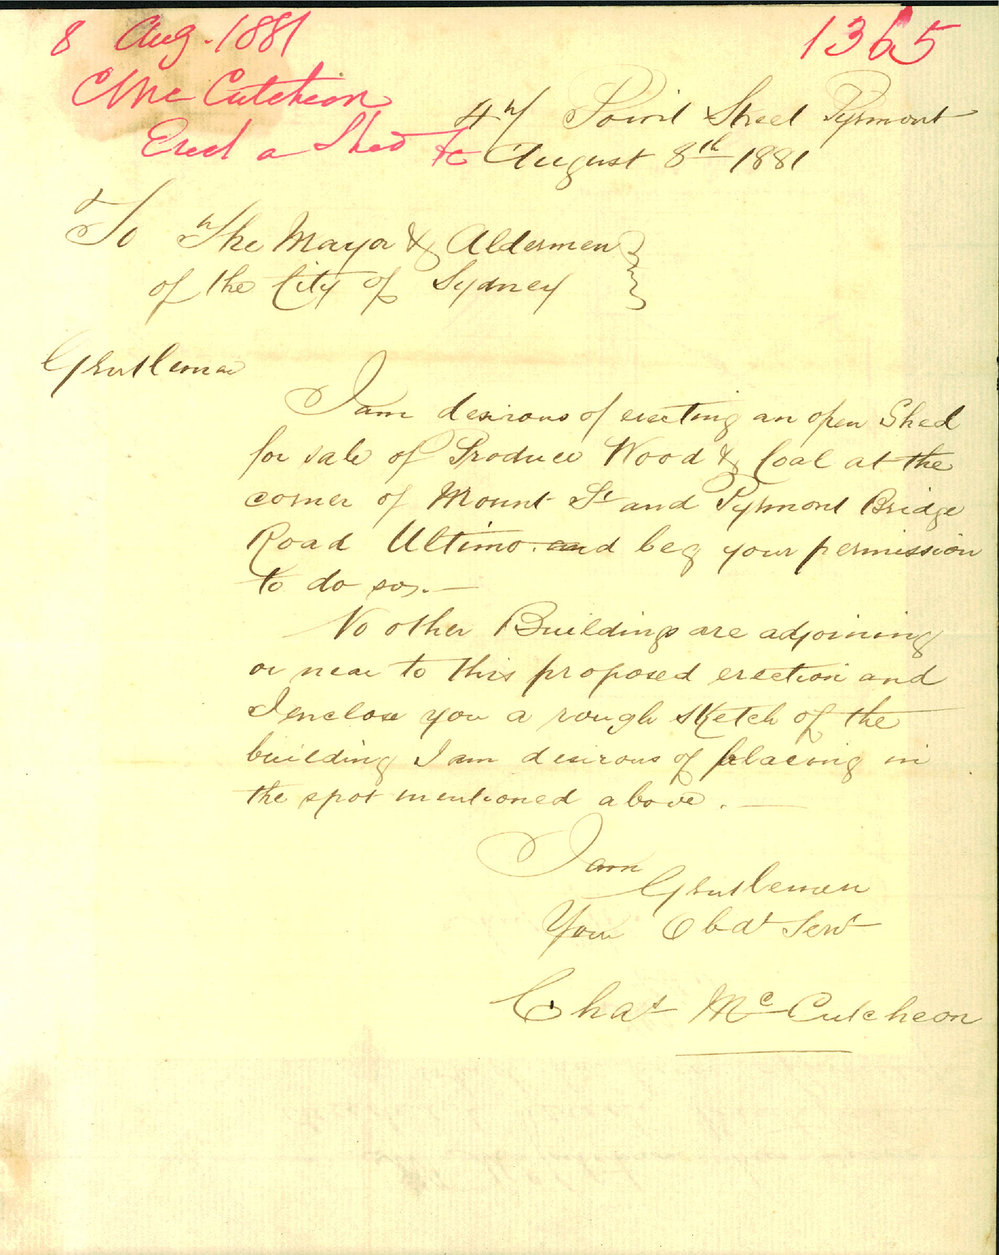 8 Aug. 1881
1365
C Mc Cutcheon
Erect a Shed &c
Point Street Pyrmont
August 8th 1881
To The Mayor & Aldermen
of the City of Sydney
Gentlemen
I am desirous of erecting an open Shed
for sale of Produce Wood & Coal at the
corner of Mount St and Pyrmont Bridge
Road Ultimo. and beg your permission
to do so.—
No other Buildings are adjoining
or near to this proposed erection and
I enclose you a rough sketch of the
building I am desirous of placing in
the spot mentioned above. —
I am
Gentlemen
Your Obdt Servt
Chas Mc Cutcheon